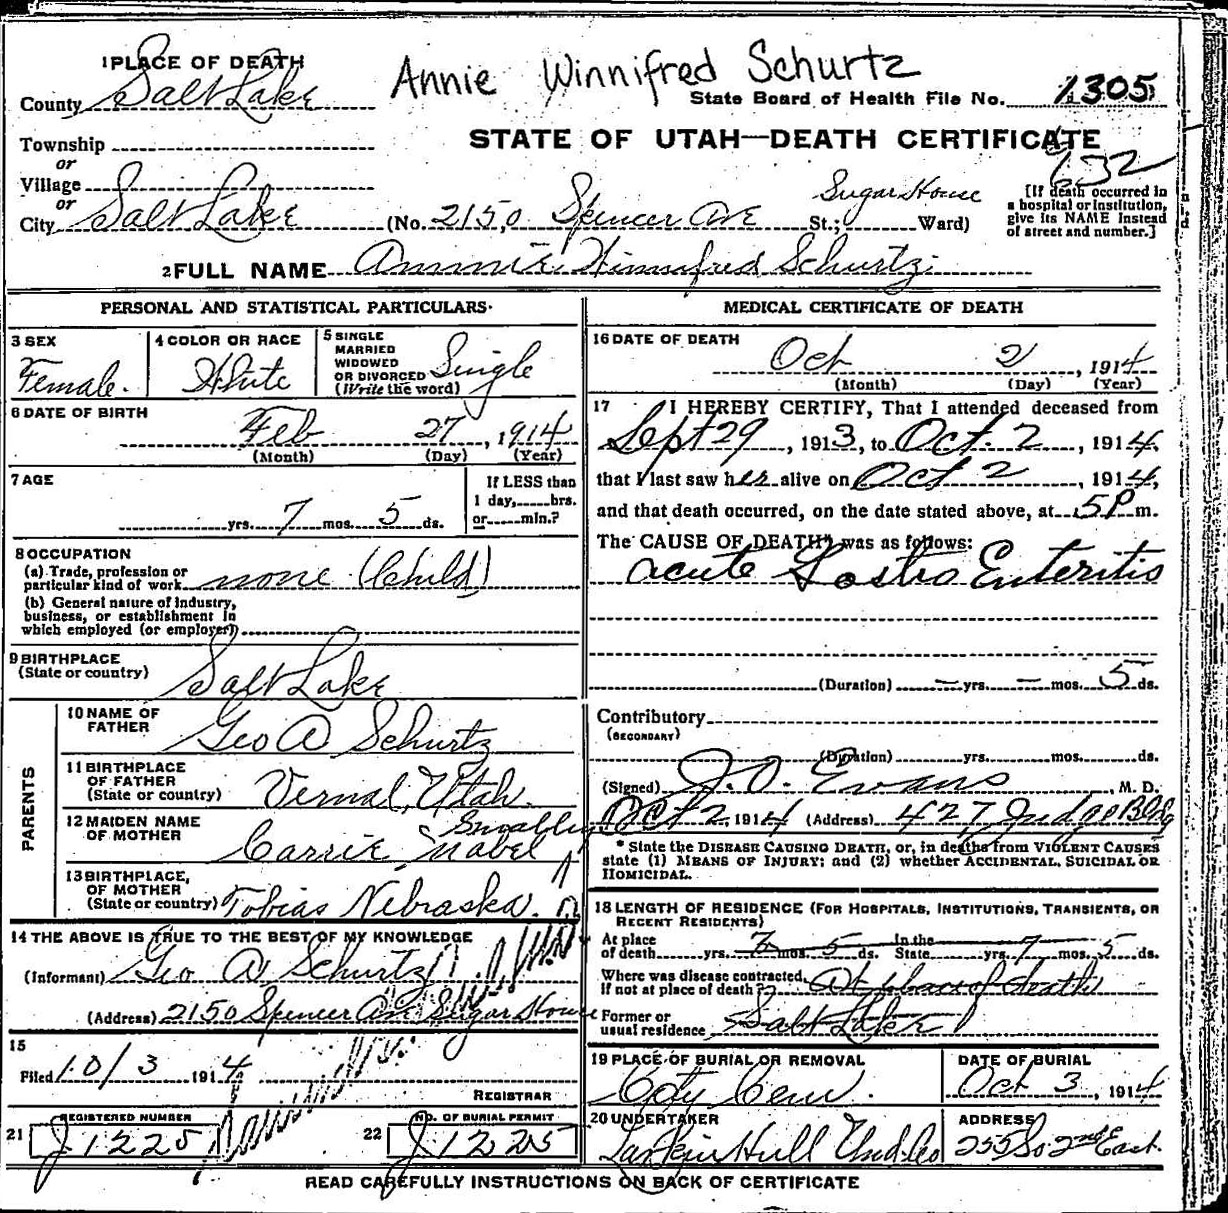 1 PLACE OF DEATH
Annie Winnifred Schurtz
County Salt Lake
State Board of Health File No. 1305
Township
STATE OF UTAH—DEATH CERTIFICATE
or
632
Village
or
City Salt Lake (No. 2150 Spencer Ave St.; Sugar House Ward)
[If death occurred in
a hospital or institution,
give its NAME instead
of street and number.]
2 FULL NAME Annie Winnifred Schurtz
PERSONAL AND STATISTICAL PARTICULARS
3 SEX
Female.
4 COLOR OR RACE
White
5 SINGLE
MARRIED
WIDOWED
OR DIVORCED
(Write the word)
Single
6 DATE OF BIRTH
Feb 27, 1914
(Month) (Day) (Year)
7 AGE
yrs. 7 mos. 5 ds.
If LESS than
1 day, hrs.
or min.?
8 OCCUPATION
(a) Trade, profession or
particular kind of work none (Child)
(b) General nature of industry,
business, or establishment in
which employed (or employer)
9 BIRTHPLACE
(State or country)
Salt Lake
PARENTS
10 NAME OF
FATHER
Geo A Schurtz
11 BIRTHPLACE
OF FATHER
(State or country)
Vernal, Utah.
12 MAIDEN NAME
OF MOTHER
Carrie Mabel
13 BIRTHPLACE,
OF MOTHER
(State or country)
Tobias Nebraska.
14 THE ABOVE IS TRUE TO THE BEST OF MY KNOWLEDGE
(Informant) Geo A Schurtz
(Address) 2150 Spencer Ave Sugar House
15
Filed 10/3 1914
REGISTRAR
21
REGISTERED NUMBER
J1225
22
NO. OF BURIAL PERMIT
J1225
MEDICAL CERTIFICATE OF DEATH
16 DATE OF DEATH
Oct 2, 1914
(Month) (Day) (Year)
17 I HEREBY CERTIFY, That I attended deceased from
Sept 29, 1913, to Oct. 2, 1914,
that I last saw her alive on Oct 2, 1914,
and that death occurred, on the date stated above, at 5P m.
The CAUSE OF DEATH* was as follows:
acute Gastro Enteritis
(Duration) — yrs. — mos. 5 ds.
Contributory
(SECONDARY)
(Duration) yrs. mos. ds.
(Signed) J. O. Evans, M. D.
Oct 2, 1914 (Address) 427 Judge Bldg
* State the DISEASE CAUSING DEATH, or, in deaths from VIOLENT CAUSES
state (1) MEANS OF INJURY; and (2) whether ACCIDENTAL, SUICIDAL OR
HOMICIDAL.
18 LENGTH OF RESIDENCE (FOR HOSPITALS, INSTITUTIONS, TRANSIENTS, OR
RECENT RESIDENTS)
At place
of death yrs. 7 mos. 5 ds.
In the
State yrs. 7 mos. 5 ds.
Where was disease contracted,
If not at place of death? At place of death
Former or
usual residence Salt Lake
19 PLACE OF BURIAL OR REMOVAL
City Cem.
DATE OF BURIAL
Oct 3, 1914
20 UNDERTAKER
Larkin Hull Und. Co
ADDRESS
255 So 2nd East.
READ CAREFULLY INSTRUCTIONS ON BACK OF CERTIFICATE